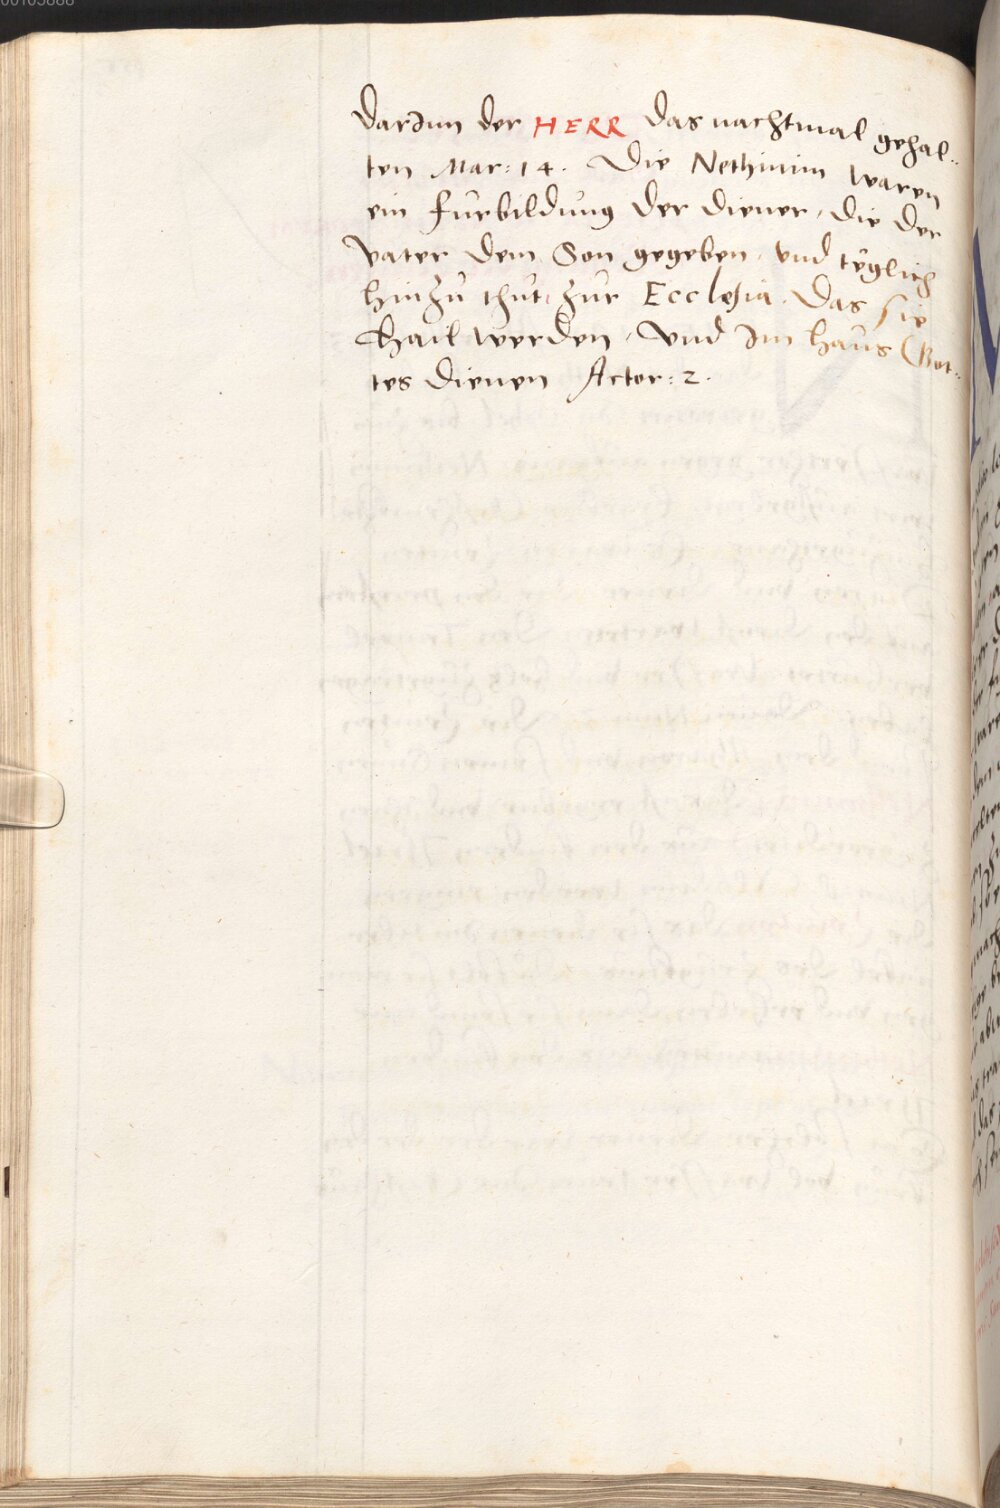 darÿnn der HERR das nachtmal gehal-
ten Mar: 14. Die Nethinim waren
ein furbildung der diener, die der
Vater dem Son gegeben, und teglich
hinzu thut zur Ecclesia. Das sie
Hail werden, Und Im haus Got-
tes dienen Actor: 2.